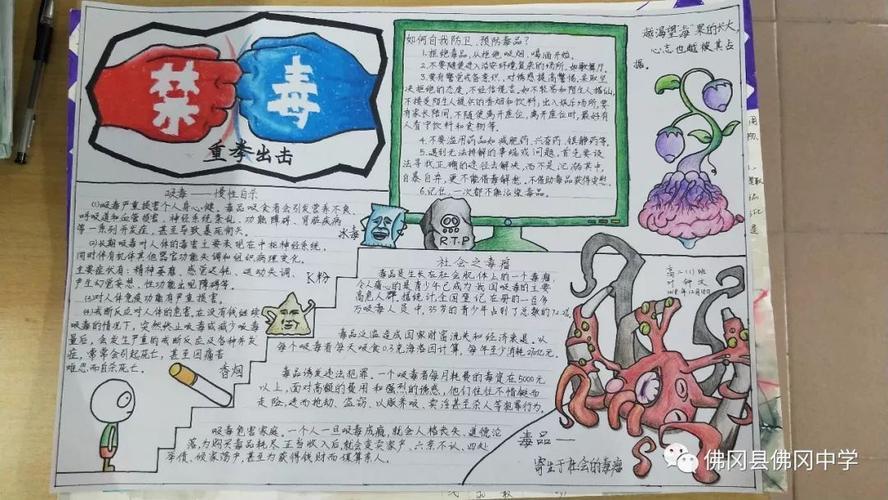 禁毒
重拳出击
如何自我防卫、预防毒品?
1.拒绝毒品,从拒绝吸烟、喝酒开始。
2.不要随便进入治安环境复杂的场所,如歌舞厅。
3.要有警觉戒备意识,对诱惑提高警惕,采取坚
决拒绝的态度,不轻信谎言。如不轻易和陌生人搭讪,
不接受陌生人提供的香烟和饮料,出入娱乐场所,要
有家长陪同,不随便离开座位,离开座位时,最好有
人看守饮料和食物等。
4.不要滥用药品如减肥药、兴奋药、镇静药等。
5.遇到无法排解的事端或问题,首先要设
法寻找正确的途径去解决,而不是沉溺其中,
自暴自弃,更不能借毒解愁。不借助毒品获得安慰。
6.记住:一次都不能沾染毒品。
越渴望“毒”果的长大,
心志也越被其占
据。
吸毒——慢性自杀
(1)吸毒严重损害个人身心健。毒品吸食者会引发营养不良、
呼吸道和血管损害、神经系统紊乱、功能障碍、肾脏疾病
等一系列并发症,甚至导致暴死街头。
(2)长期吸毒对人体的毒害主要表现在中枢神经系统,
同时伴有机体其他器官功能失调和组织病理变化。
主要症状有:精神萎靡、感觉迟钝、运动失调、
产生幻觉妄想、性功能出现障碍等。
(3)对人体免疫功能有严重损害。
(4)戒断反应对人体的危害,在没有镇继续
吸毒的情况下,突然终止吸毒或减少吸毒
量后,会发生严重的戒断反应及各种并发
症,常常会引起死亡,甚至因痛苦
难忍而自杀死亡。
冰毒
R.T.P
K粉
香烟
社会之毒瘤
毒品是生长在社会肌体上的一个毒瘤,
令人痛心的是青少年已成为我国吸毒的主要
高危人群。据统计全国登记在册的一百多
万吸毒人员中,35岁的青少年占到了总数的72.2%。
毒品泛滥造成国家财富流失和经济衰退。以
每个吸毒者每天吸食0.3克海洛因计算,每年至少消耗270亿元。
毒品诱发违法犯罪。一个吸毒者每月耗费的毒资在5000元
以上,面对高额的费用和强烈的诱惑,他们往往不惜铤而
走险,进而抢劫、盗窃、以贩养吸、卖淫甚至杀人等犯罪行为。
吸毒危害家庭。一个人一旦吸毒成瘾,就会人格丧失、道德沦
落,为购买毒品耗尽正当收入后,就会变卖家产、六亲不认、四处
举债、倾家荡产,甚至为获得钱财而谋算亲人。
高二(1)班
毒品——
寄生于社会的毒瘤
佛冈县佛冈中学